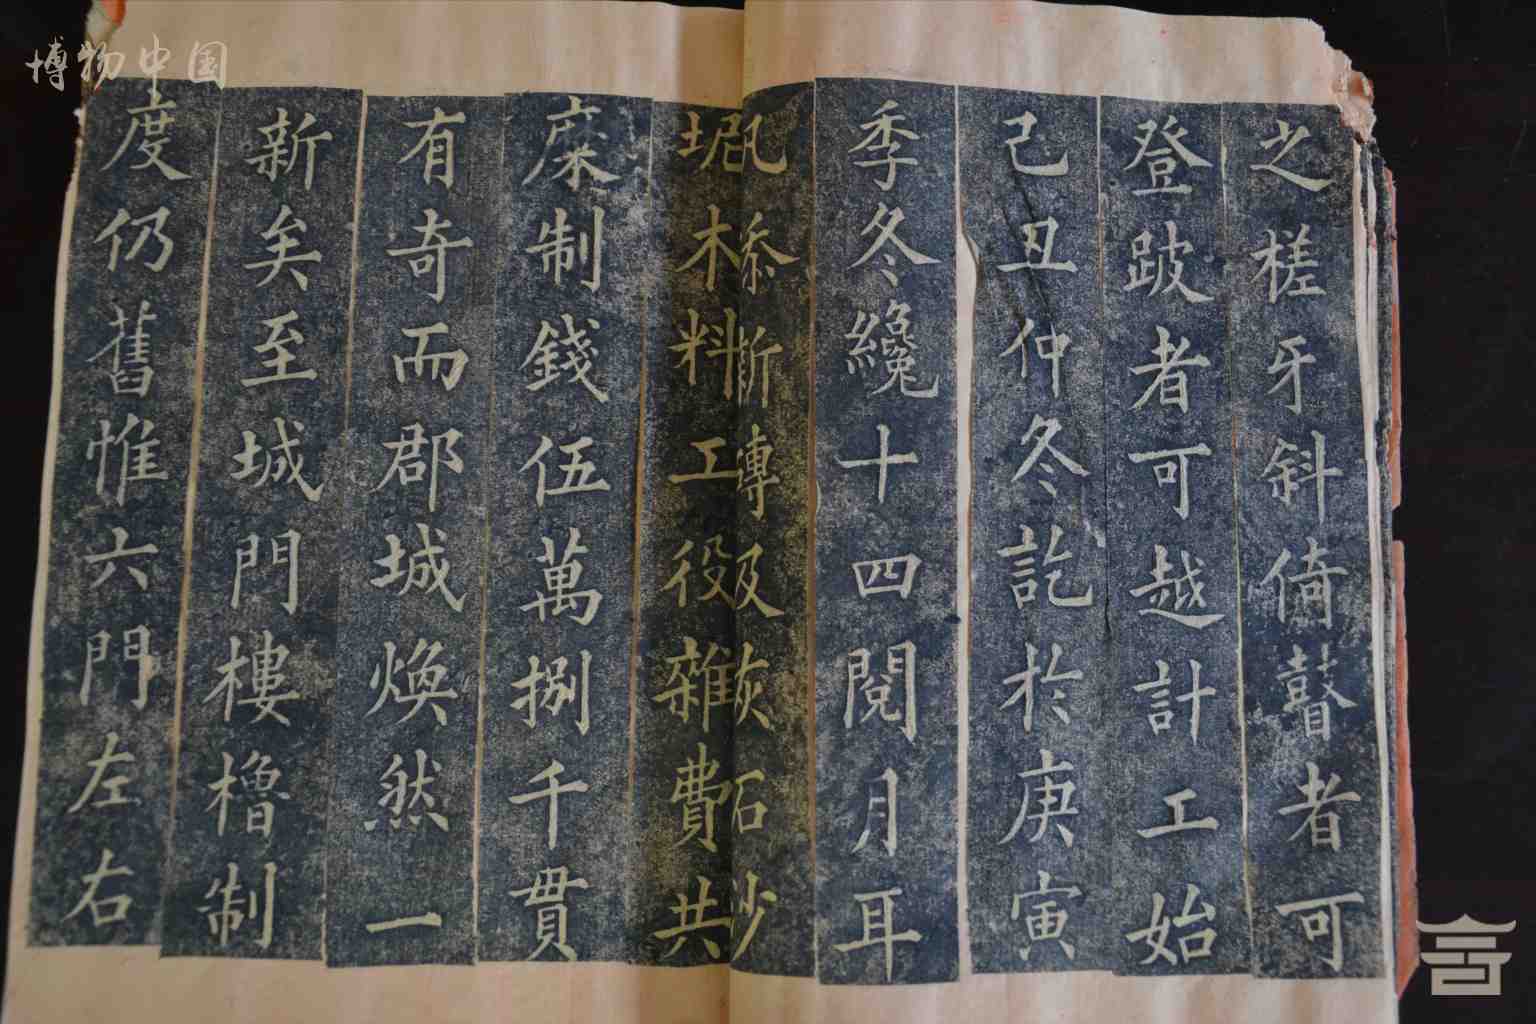 博物中国
之槎牙斜倚瞽者可
登跛者可越計工始
己丑仲冬訖於庚寅
季冬纔十四閱月耳
添斷磚及灰石沙
堀木料工役雜費共
糜制錢伍萬捌千貫
有奇而郡城煥然一
新矣至城門樓櫓制
度仍舊惟六門左右